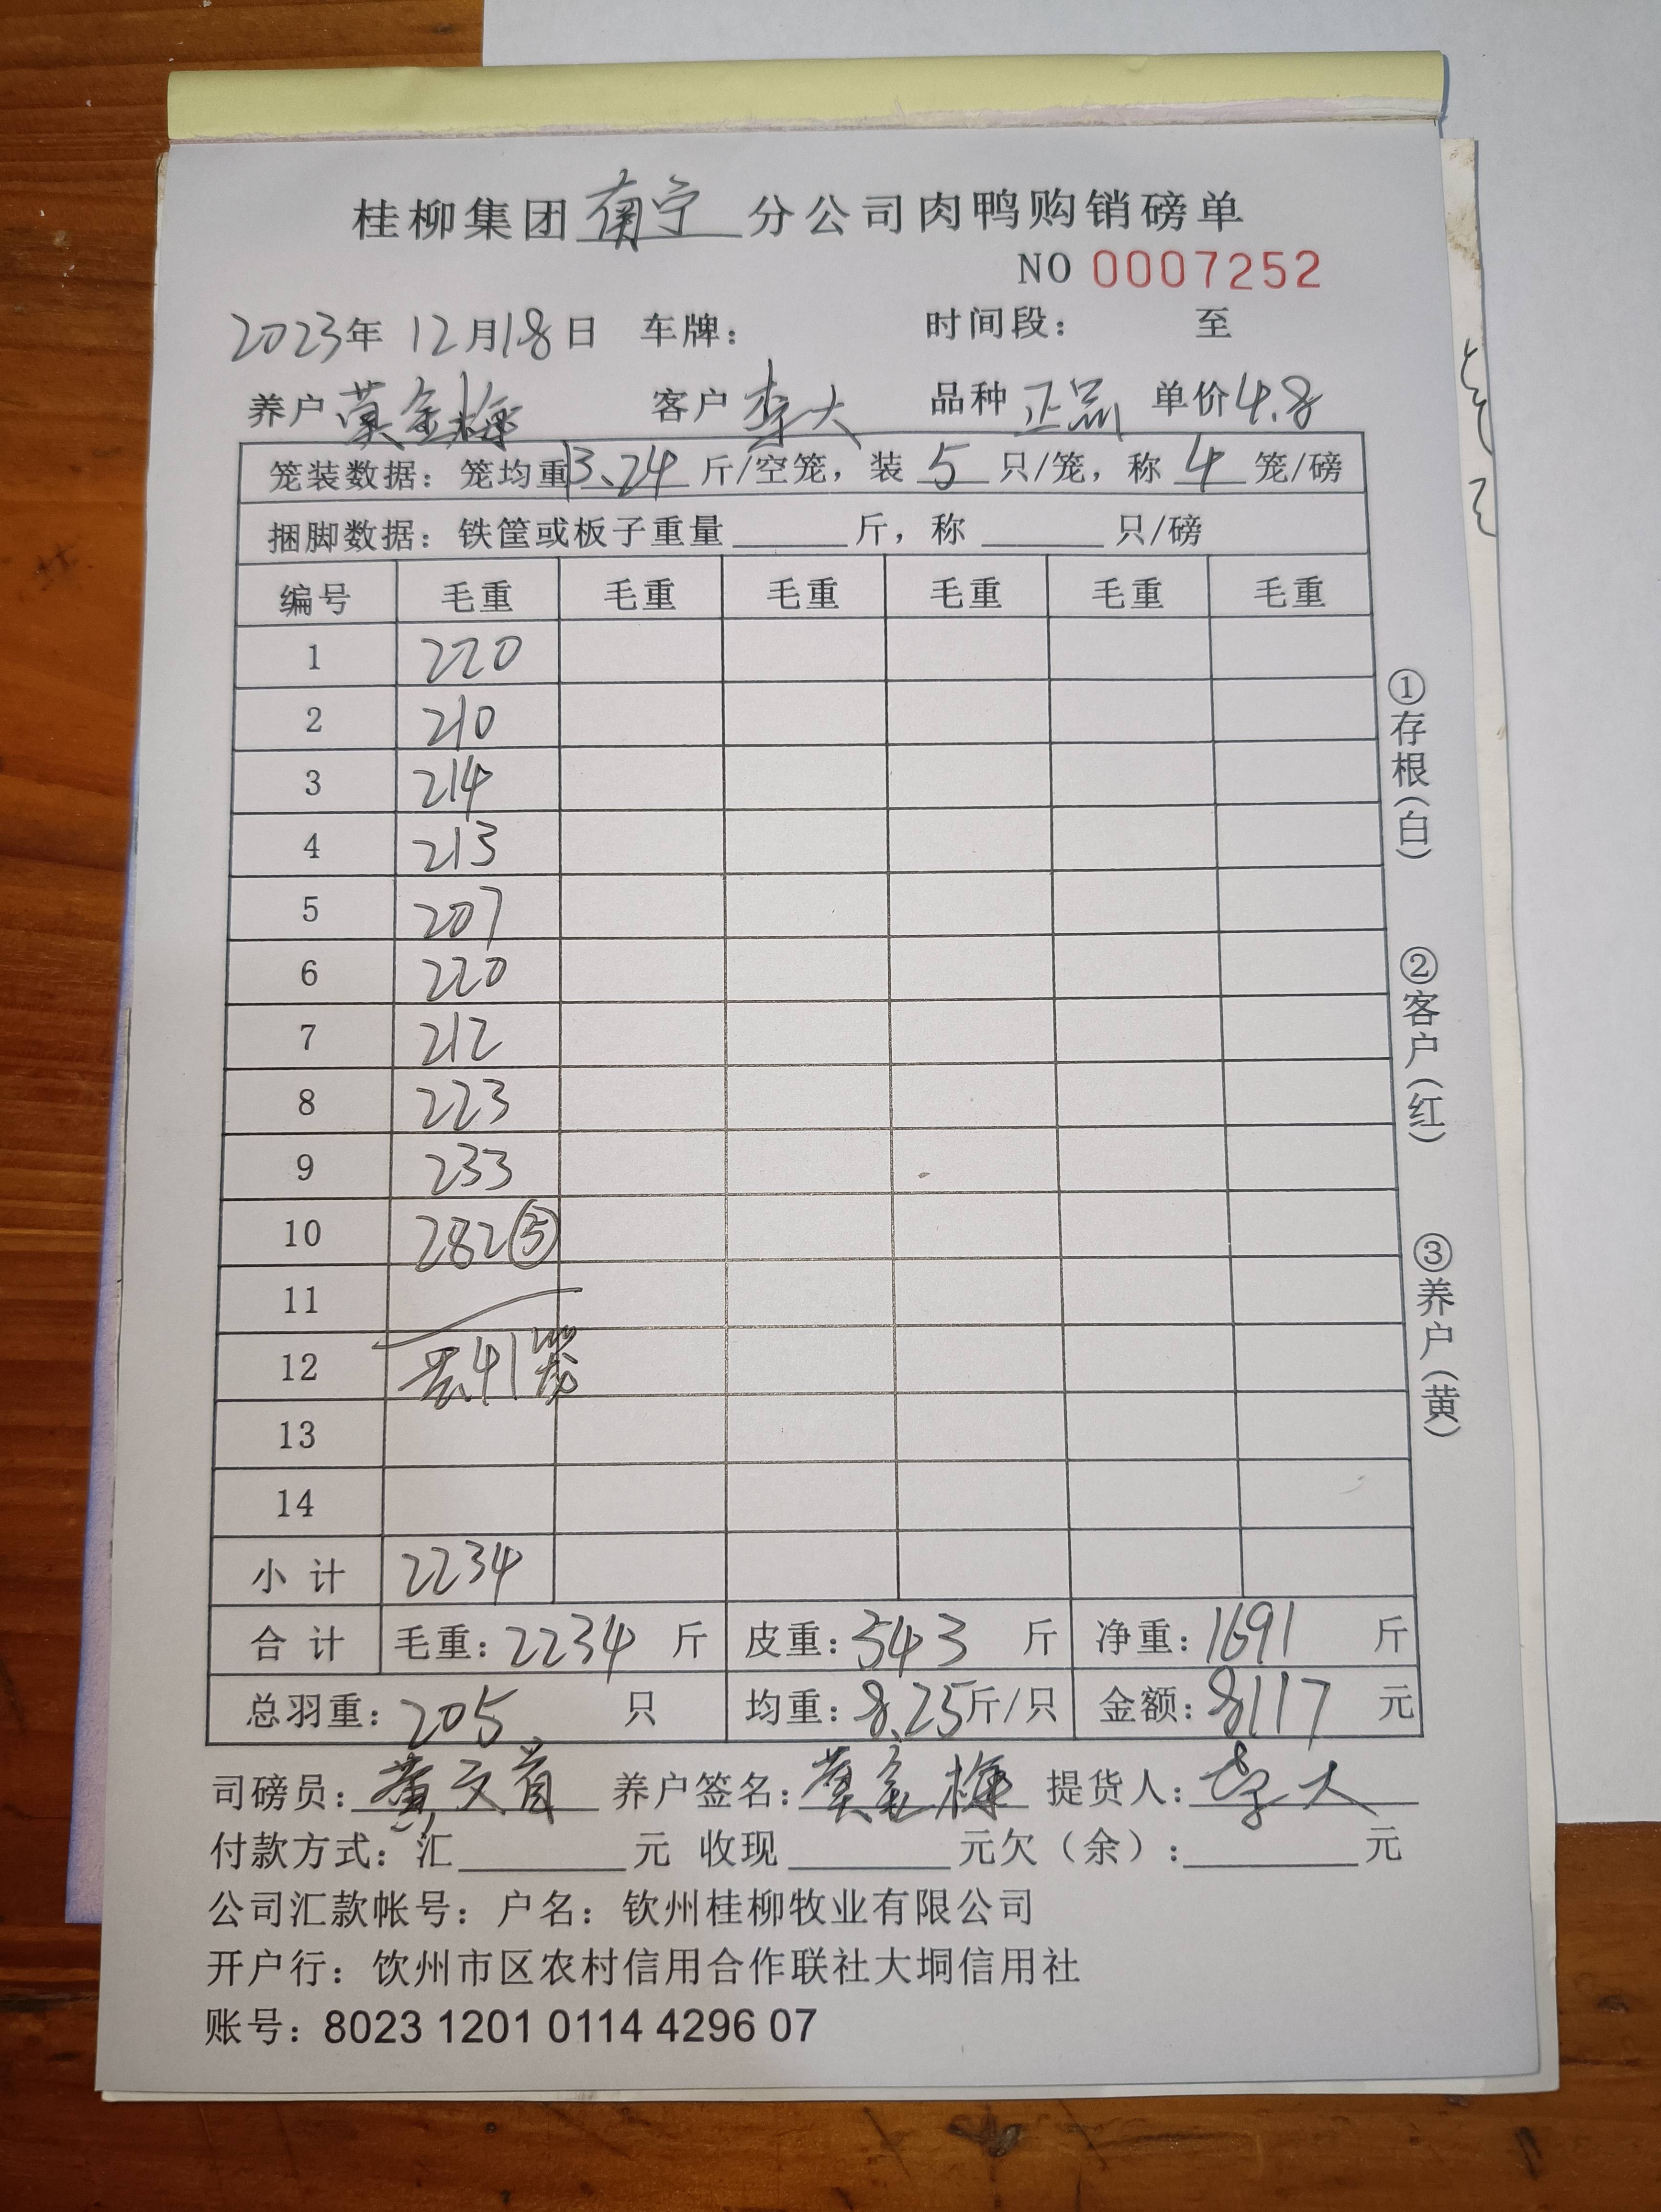 桂柳集团南宁分公司肉鸭购销磅单
NO 0007252
2023年 12月18日 车牌： 时间段： 至
养户 莫金梅 客户 李大 品种 正品 单价 4.8
笼装数据：笼均重 13.24 斤/空笼，装 5 只/笼，称 4 笼/磅
捆脚数据：铁筐或板子重量______斤，称______只/磅
编号 毛重 毛重 毛重 毛重 毛重 毛重
1 220
2 210
3 214
4 213
5 207
6 220
7 212
8 223
9 233
10 282⑤
11
12 共41笼
13
14
小计 2234
合计 毛重：2234 斤 皮重：543 斤 净重：1691 斤
总羽重：205 只 均重：8.25斤/只 金额：8117 元
司磅员：黄文 养户签名：莫金梅 提货人：李大
付款方式：汇______元 收现______元欠（余）：______元
公司汇款帐号：户名：钦州桂柳牧业有限公司
开户行：饮州市区农村信用合作联社大垌信用社
账号：8023 1201 0114 4296 07
①存根（白）
②客户（红）
③养户（黄）